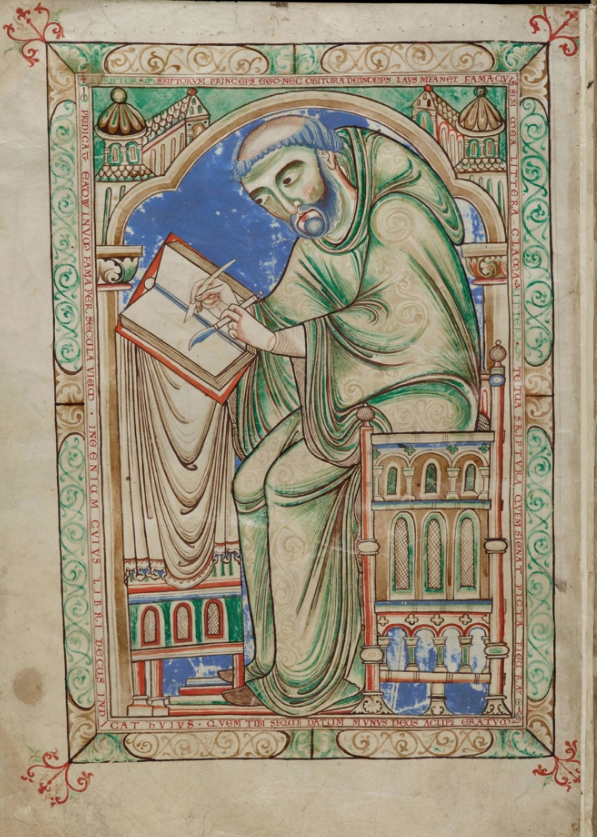 SCRIPTORVM PRINCEPS EGO NEC OBITVRA DEINCEPS LAVS MEA NEC FAMA QVI
SIM MEA LITTERA CLAMA LITTERA TE TVA SCRIPTVRA QVEM SIGNAT PICTA FIGVRA
PREDICAT EADWINVM FAMA PER SECVLA VIVVM · INGENIVM CVIVS LIBRI DECVS IND
ICAT HVIVS · QVEM TIBI SEQVE DATVM MVNVS DEVS ACCIPE GRATVM